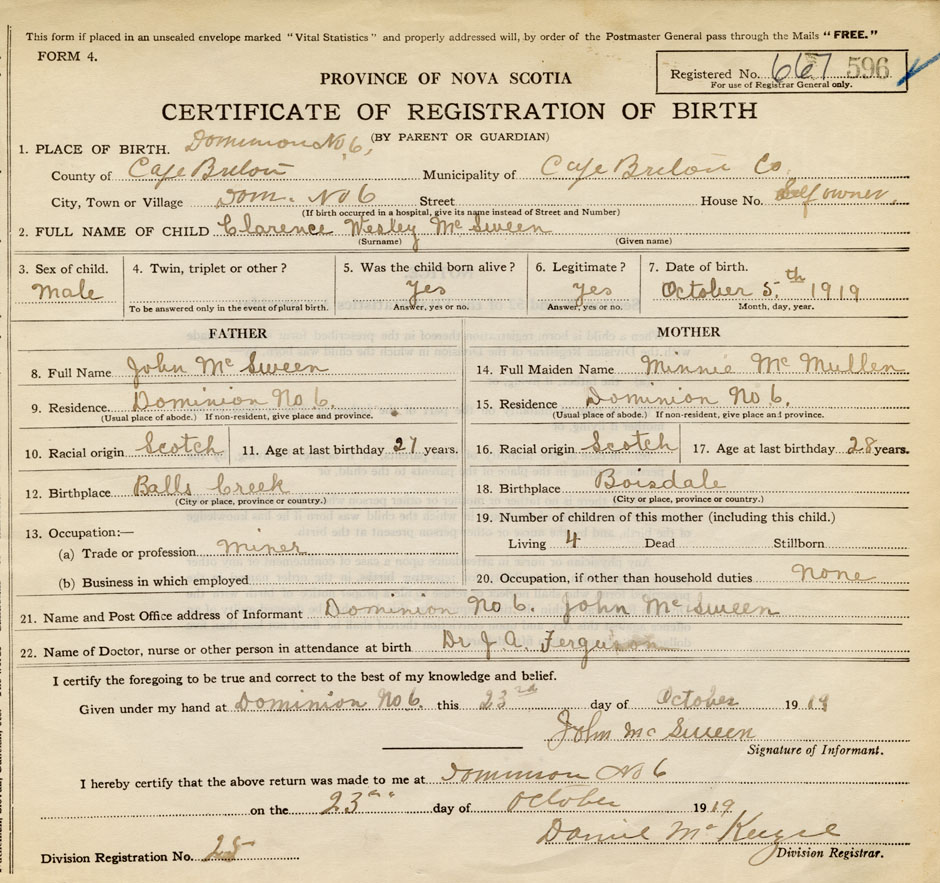 This form if placed in an unsealed envelope marked "Vital Statistics" and properly addressed will, by order of the Postmaster General pass through the Mails "FREE."
FORM 4.
Registered No. 667 596
For use of Registrar General only.
PROVINCE OF NOVA SCOTIA
CERTIFICATE OF REGISTRATION OF BIRTH
(BY PARENT OR GUARDIAN)
1. PLACE OF BIRTH. Dominion No 6,
County of Cape Breton Municipality of Cape Breton Co.
City, Town or Village Dom. No 6 Street House No. Self owner.
(If birth occurred in a hospital, give its name instead of Street and Number)
2. FULL NAME OF CHILD Clarence Wesley Mc Sween
(Surname) (Given name)
3. Sex of child. 4. Twin, triplet or other? 5. Was the child born alive? 6. Legitimate? 7. Date of birth.
Male Yes yes October 5.th 1919
To be answered only in the event of plural birth. Answer, yes or no. Answer, yes or no. Month, day, year.
FATHER MOTHER
8. Full Name John Mc Sween 14. Full Maiden Name Minnie Mc Mullen
9. Residence. Dominion No 6. 15. Residence Dominion No 6.
(Usual place of abode.) If non-resident, give place and province. (Usual place of abode.) If non-resident, give place and province.
10. Racial origin Scotch 11. Age at last birthday 27 years. 16. Racial origin Scotch 17. Age at last birthday 28 years.
12. Birthplace Balls Creek 18. Birthplace Boisdale
(City or place, province or country.) (City or place, province or country.)
13. Occupation:— 19. Number of children of this mother (including this child.)
(a) Trade or profession Miner Living 4 Dead Stillborn
(b) Business in which employed 20. Occupation, if other than household duties None
21. Name and Post Office address of Informant Dominion No 6. John Mc Sween
22. Name of Doctor, nurse or other person in attendance at birth Dr J. A. Ferguson
I certify the foregoing to be true and correct to the best of my knowledge and belief.
Given under my hand at Dominion No 6. this 23rd day of October 1919
John Mc Sween
Signature of Informant.
I hereby certify that the above return was made to me at Dominion No 6
on the 23 day of October 1919
Mc
Division Registration No. 28 Division Registrar.